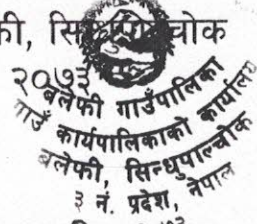 फी, सिन्धुपाल्चोक
२०७३
बलेफी गाउँपालिका
गाउँ कार्यपालिकाको कार्यालय
बलेफी, सिन्धुपाल्चोक
३ नं. प्रदेश, नेपाल